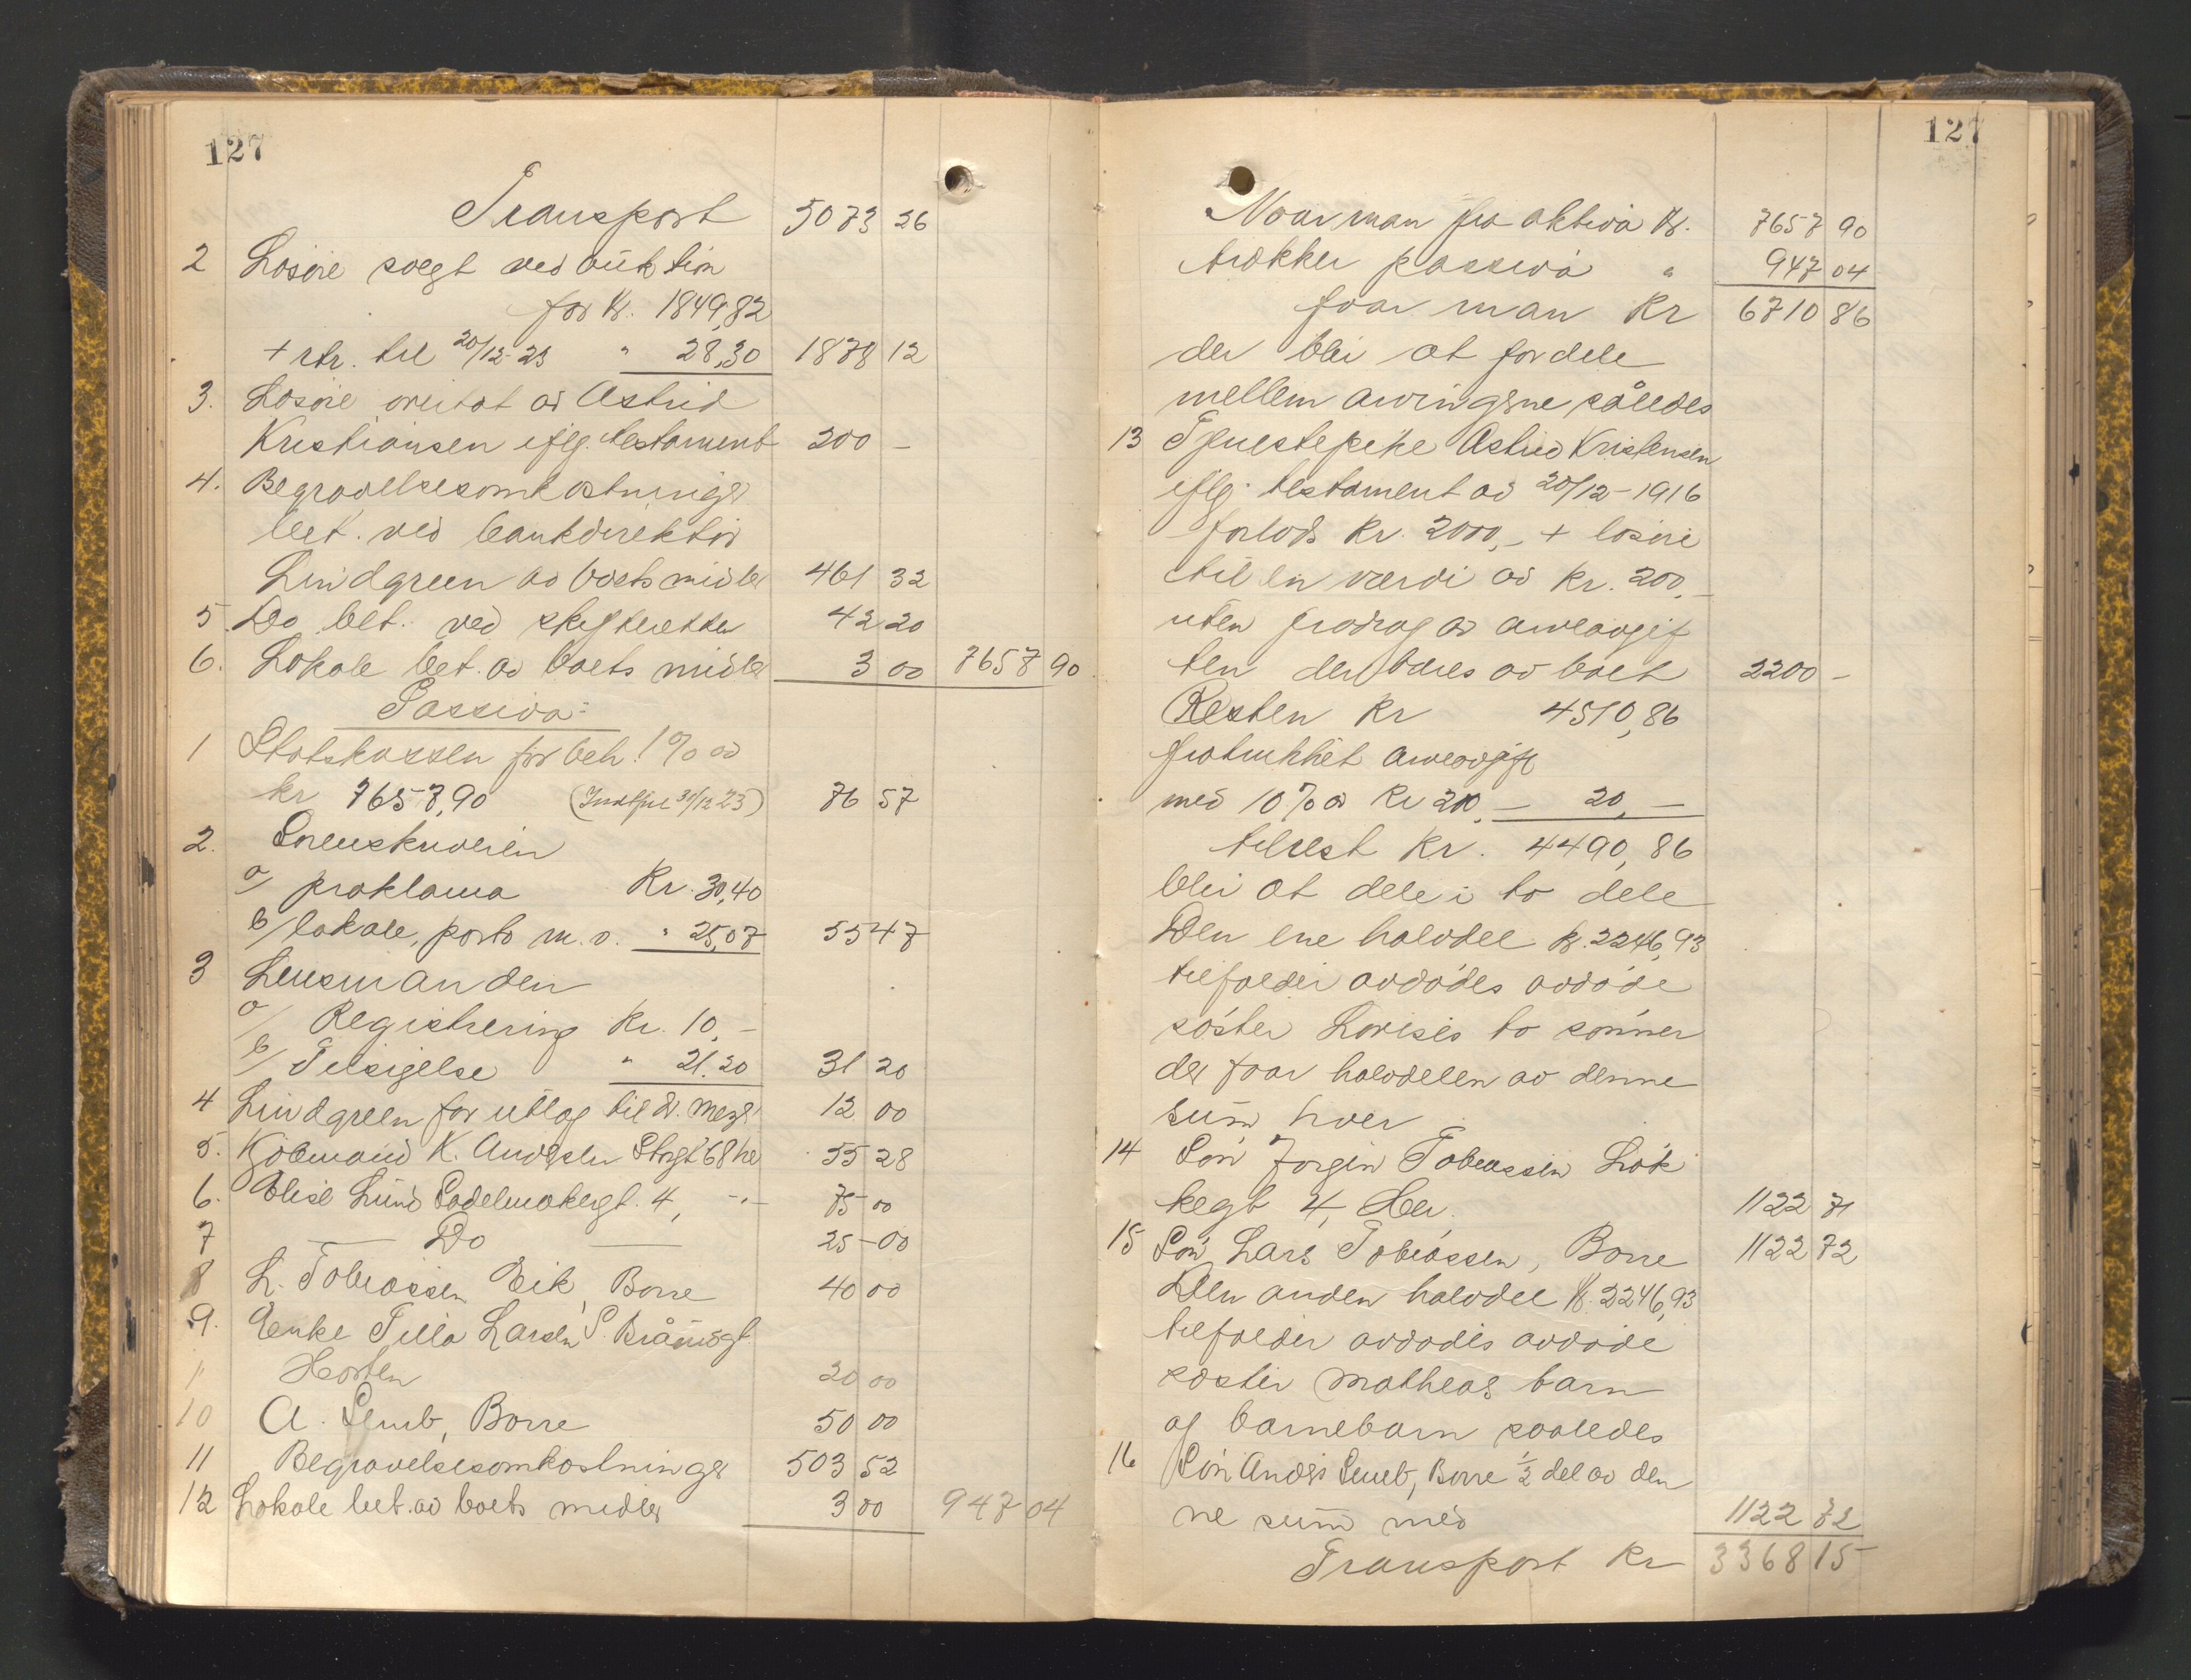 127
Transport 5073 26
2 Løsøre solgt ved auktion
for kr. 1849,82
+ rtr. til 20/12-23 " 28,30 1878 12
3. Løsøre overtat av Astrid
Kristiansen iflg. testament 200 -
4. Begravelsesomkostninger
bet. ved bankdirektør
Lindgreen av boets midler 461 32
5. Do bet. ved skifteretten 42 20
6. Lokale bet. av boets midler 3 00 7657 90
Passiva:
1 Statskassen for beh. 1% av
kr 7657,90 (Indtført 31/12 23) 76 57
2. Sorenskriveren
a/ proklama Kr. 30,40
b/ lokale, porto m.v. " 25,07 55 47
3 Lensmanden
a/ Registrering kr. 10,-
b/ Tilsigelse " 21.20 31 20
4 Lindgreen for utlæg til dr. Meyer 12 00
5. Kjøbmand K. Andersen Storgt 68 her 55 28
6. Elise Lund Sadelmakergt. 4, -"- 75 00
7 Do 25 - 00
8 L. Tobiassen Eik, Borre 40 00
9. Enke Tilla Larsen S. Brårudgt.
Horten 20 00
10 A. Semb, Borre 50 00
11 Begravelsesomkostninger 503 52
12 Lokale bet. av boets midler 3 00 947 04
127
Naar man fra aktiva kr. 7657 90
trækker passiva " 947 04
faar man Kr 6710 86
der blir at fordele
mellem arvingerne således
13 Tjenestepike Astrid Kristensen
iflg. testament av 20/12-1916
forlods kr. 2000,- + løsøre
til en værdi av kr. 200,-
uten fradrag av arveavgif
ten der bæres av boet 2200 -
Resten kr 4510,86
fratrukket arveavgift
med 10% av kr 200,- 20,-
tilrest kr. 4490,86
blir at dele i to dele
Den ene halvdel kr. 2246,93
tilfalder avdødes avdøde
søster Lovises to sønner
der faar halvdelen av denne
sum hver
14 Søn Jørgen Tobiassen Løk
kegt 4, Her. 1122 71
15 Søn Lars Tobiassen, Borre 1122 72
Den anden halvdel kr. 2246,93
tilfalder avdødes avdøde
søster Matheas barn
og barnebarn saaledes
16 Søn Anders Semb, Borre 1/2 del av den
ne sum med 1122 72
Transport kr 3368 15